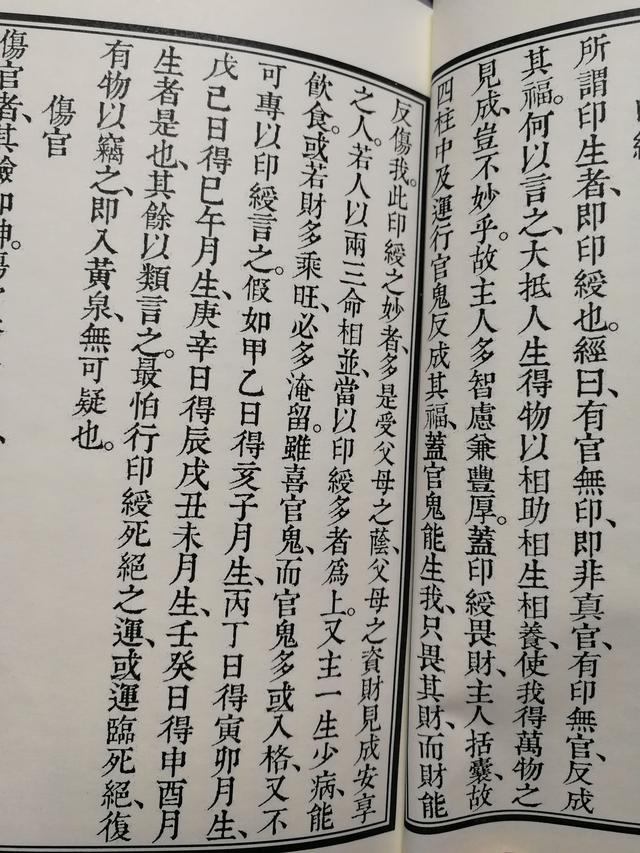 所謂印生者、即印綬也。經曰、有官無印、即非真官、有印無官、反成
其福。何以言之、大抵人生得物以相助相生相養、使我得萬物之
見成、豈不妙乎。故主人多智慮、兼豐厚。蓋印綬畏財、主人括囊、故
四柱中及運行官鬼、反成其福、蓋官鬼能生我、只畏其財、而財能
反傷我。此印綬之妙者、多是受父母之蔭、父母之資財、見成安享
之人。若人以兩三命相並、當以印綬多者爲上。又主一生少病、能
飲食。或若財多乘旺、必多淹留。雖喜官鬼、而官鬼多或入格、又不
可專以印綬言之。假如甲乙日得亥子月生、丙丁日得寅卯月生、
戊己日得巳午月生、庚辛日得辰戌丑未月生、壬癸日得申酉月
生者是也、其餘以類言之。最怕行印綬死絕之運、或運臨死絕、復
有物以竊之、即入黃泉、無可疑也。
傷官
傷官者、其驗如神。傷